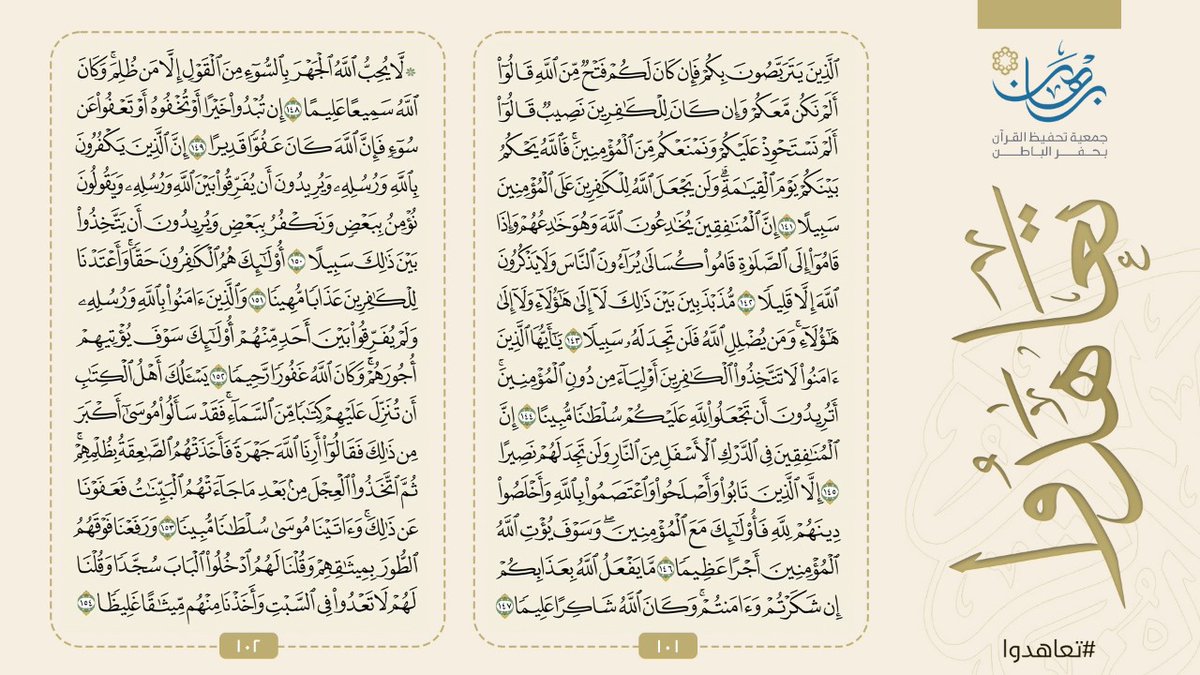 برهان
جمعية تحفيظ القرآن
بحفر الباطن
تعاهدوا
#تعاهدوا
ٱلَّذِينَ يَتَرَبَّصُونَ بِكُمْ فَإِن كَانَ لَكُمْ فَتْحٌ مِّنَ ٱللَّهِ قَالُوٓا۟
أَلَمْ نَكُن مَّعَكُمْ وَإِن كَانَ لِلْكَٰفِرِينَ نَصِيبٌ قَالُوٓا۟
أَلَمْ نَسْتَحْوِذْ عَلَيْكُمْ وَنَمْنَعْكُم مِّنَ ٱلْمُؤْمِنِينَ ۚ فَٱللَّهُ يَحْكُمُ
بَيْنَكُمْ يَوْمَ ٱلْقِيَٰمَةِ ۗ وَلَن يَجْعَلَ ٱللَّهُ لِلْكَٰفِرِينَ عَلَى ٱلْمُؤْمِنِينَ
سَبِيلًا ١٤١ إِنَّ ٱلْمُنَٰفِقِينَ يُخَٰدِعُونَ ٱللَّهَ وَهُوَ خَٰدِعُهُمْ وَإِذَا
قَامُوٓا۟ إِلَى ٱلصَّلَوٰةِ قَامُوا۟ كُسَالَىٰ يُرَآءُونَ ٱلنَّاسَ وَلَا يَذْكُرُونَ
ٱللَّهَ إِلَّا قَلِيلًا ١٤٢ مُّذَبْذَبِينَ بَيْنَ ذَٰلِكَ لَآ إِلَىٰ هَٰٓؤُلَآءِ وَلَآ إِلَىٰ
هَٰٓؤُلَآءِ ۚ وَمَن يُضْلِلِ ٱللَّهُ فَلَن تَجِدَ لَهُۥ سَبِيلًا ١٤٣ يَٰٓأَيُّهَا ٱلَّذِينَ
ءَامَنُوا۟ لَا تَتَّخِذُوا۟ ٱلْكَٰفِرِينَ أَوْلِيَآءَ مِن دُونِ ٱلْمُؤْمِنِينَ ۚ
أَتُرِيدُونَ أَن تَجْعَلُوا۟ لِلَّهِ عَلَيْكُمْ سُلْطَٰنًا مُّبِينًا ١٤٤ إِنَّ
ٱلْمُنَٰفِقِينَ فِى ٱلدَّرْكِ ٱلْأَسْفَلِ مِنَ ٱلنَّارِ وَلَن تَجِدَ لَهُمْ نَصِيرًا
١٤٥ إِلَّا ٱلَّذِينَ تَابُوا۟ وَأَصْلَحُوا۟ وَٱعْتَصَمُوا۟ بِٱللَّهِ وَأَخْلَصُوا۟
دِينَهُمْ لِلَّهِ فَأُو۟لَٰٓئِكَ مَعَ ٱلْمُؤْمِنِينَ ۖ وَسَوْفَ يُؤْتِ ٱللَّهُ
ٱلْمُؤْمِنِينَ أَجْرًا عَظِيمًا ١٤٦ مَّا يَفْعَلُ ٱللَّهُ بِعَذَابِكُمْ
إِن شَكَرْتُمْ وَءَامَنتُمْ ۚ وَكَانَ ٱللَّهُ شَاكِرًا عَلِيمًا ١٤٧
١٠١
۞ لَّا يُحِبُّ ٱللَّهُ ٱلْجَهْرَ بِٱلسُّوٓءِ مِنَ ٱلْقَوْلِ إِلَّا مَن ظُلِمَ ۚ وَكَانَ
ٱللَّهُ سَمِيعًا عَلِيمًا ١٤٨ إِن تُبْدُوا۟ خَيْرًا أَوْ تُخْفُوهُ أَوْ تَعْفُوا۟ عَن
سُوٓءٍ فَإِنَّ ٱللَّهَ كَانَ عَفُوًّا قَدِيرًا ١٤٩ إِنَّ ٱلَّذِينَ يَكْفُرُونَ
بِٱللَّهِ وَرُسُلِهِۦ وَيُرِيدُونَ أَن يُفَرِّقُوا۟ بَيْنَ ٱللَّهِ وَرُسُلِهِۦ وَيَقُولُونَ
نُؤْمِنُ بِبَعْضٍ وَنَكْفُرُ بِبَعْضٍ وَيُرِيدُونَ أَن يَتَّخِذُوا۟
بَيْنَ ذَٰلِكَ سَبِيلًا ١٥٠ أُو۟لَٰٓئِكَ هُمُ ٱلْكَٰفِرُونَ حَقًّا ۚ وَأَعْتَدْنَا
لِلْكَٰفِرِينَ عَذَابًا مُّهِينًا ١٥١ وَٱلَّذِينَ ءَامَنُوا۟ بِٱللَّهِ وَرُسُلِهِۦ
وَلَمْ يُفَرِّقُوا۟ بَيْنَ أَحَدٍ مِّنْهُمْ أُو۟لَٰٓئِكَ سَوْفَ يُؤْتِيهِمْ
أُجُورَهُمْ ۗ وَكَانَ ٱللَّهُ غَفُورًا رَّحِيمًا ١٥٢ يَسْـَٔلُكَ أَهْلُ ٱلْكِتَٰبِ
أَن تُنَزِّلَ عَلَيْهِمْ كِتَٰبًا مِّنَ ٱلسَّمَآءِ ۚ فَقَدْ سَأَلُوا۟ مُوسَىٰٓ أَكْبَرَ
مِن ذَٰلِكَ فَقَالُوٓا۟ أَرِنَا ٱللَّهَ جَهْرَةً فَأَخَذَتْهُمُ ٱلصَّٰعِقَةُ بِظُلْمِهِمْ ۚ
ثُمَّ ٱتَّخَذُوا۟ ٱلْعِجْلَ مِنۢ بَعْدِ مَا جَآءَتْهُمُ ٱلْبَيِّنَٰتُ فَعَفَوْنَا
عَن ذَٰلِكَ ۚ وَءَاتَيْنَا مُوسَىٰ سُلْطَٰنًا مُّبِينًا ١٥٣ وَرَفَعْنَا فَوْقَهُمُ
ٱلطُّورَ بِمِيثَٰقِهِمْ وَقُلْنَا لَهُمُ ٱدْخُلُوا۟ ٱلْبَابَ سُجَّدًا وَقُلْنَا
لَهُمْ لَا تَعْدُوا۟ فِى ٱلسَّبْتِ وَأَخَذْنَا مِنْهُم مِّيثَٰقًا غَلِيظًا ١٥٤
١٠٢